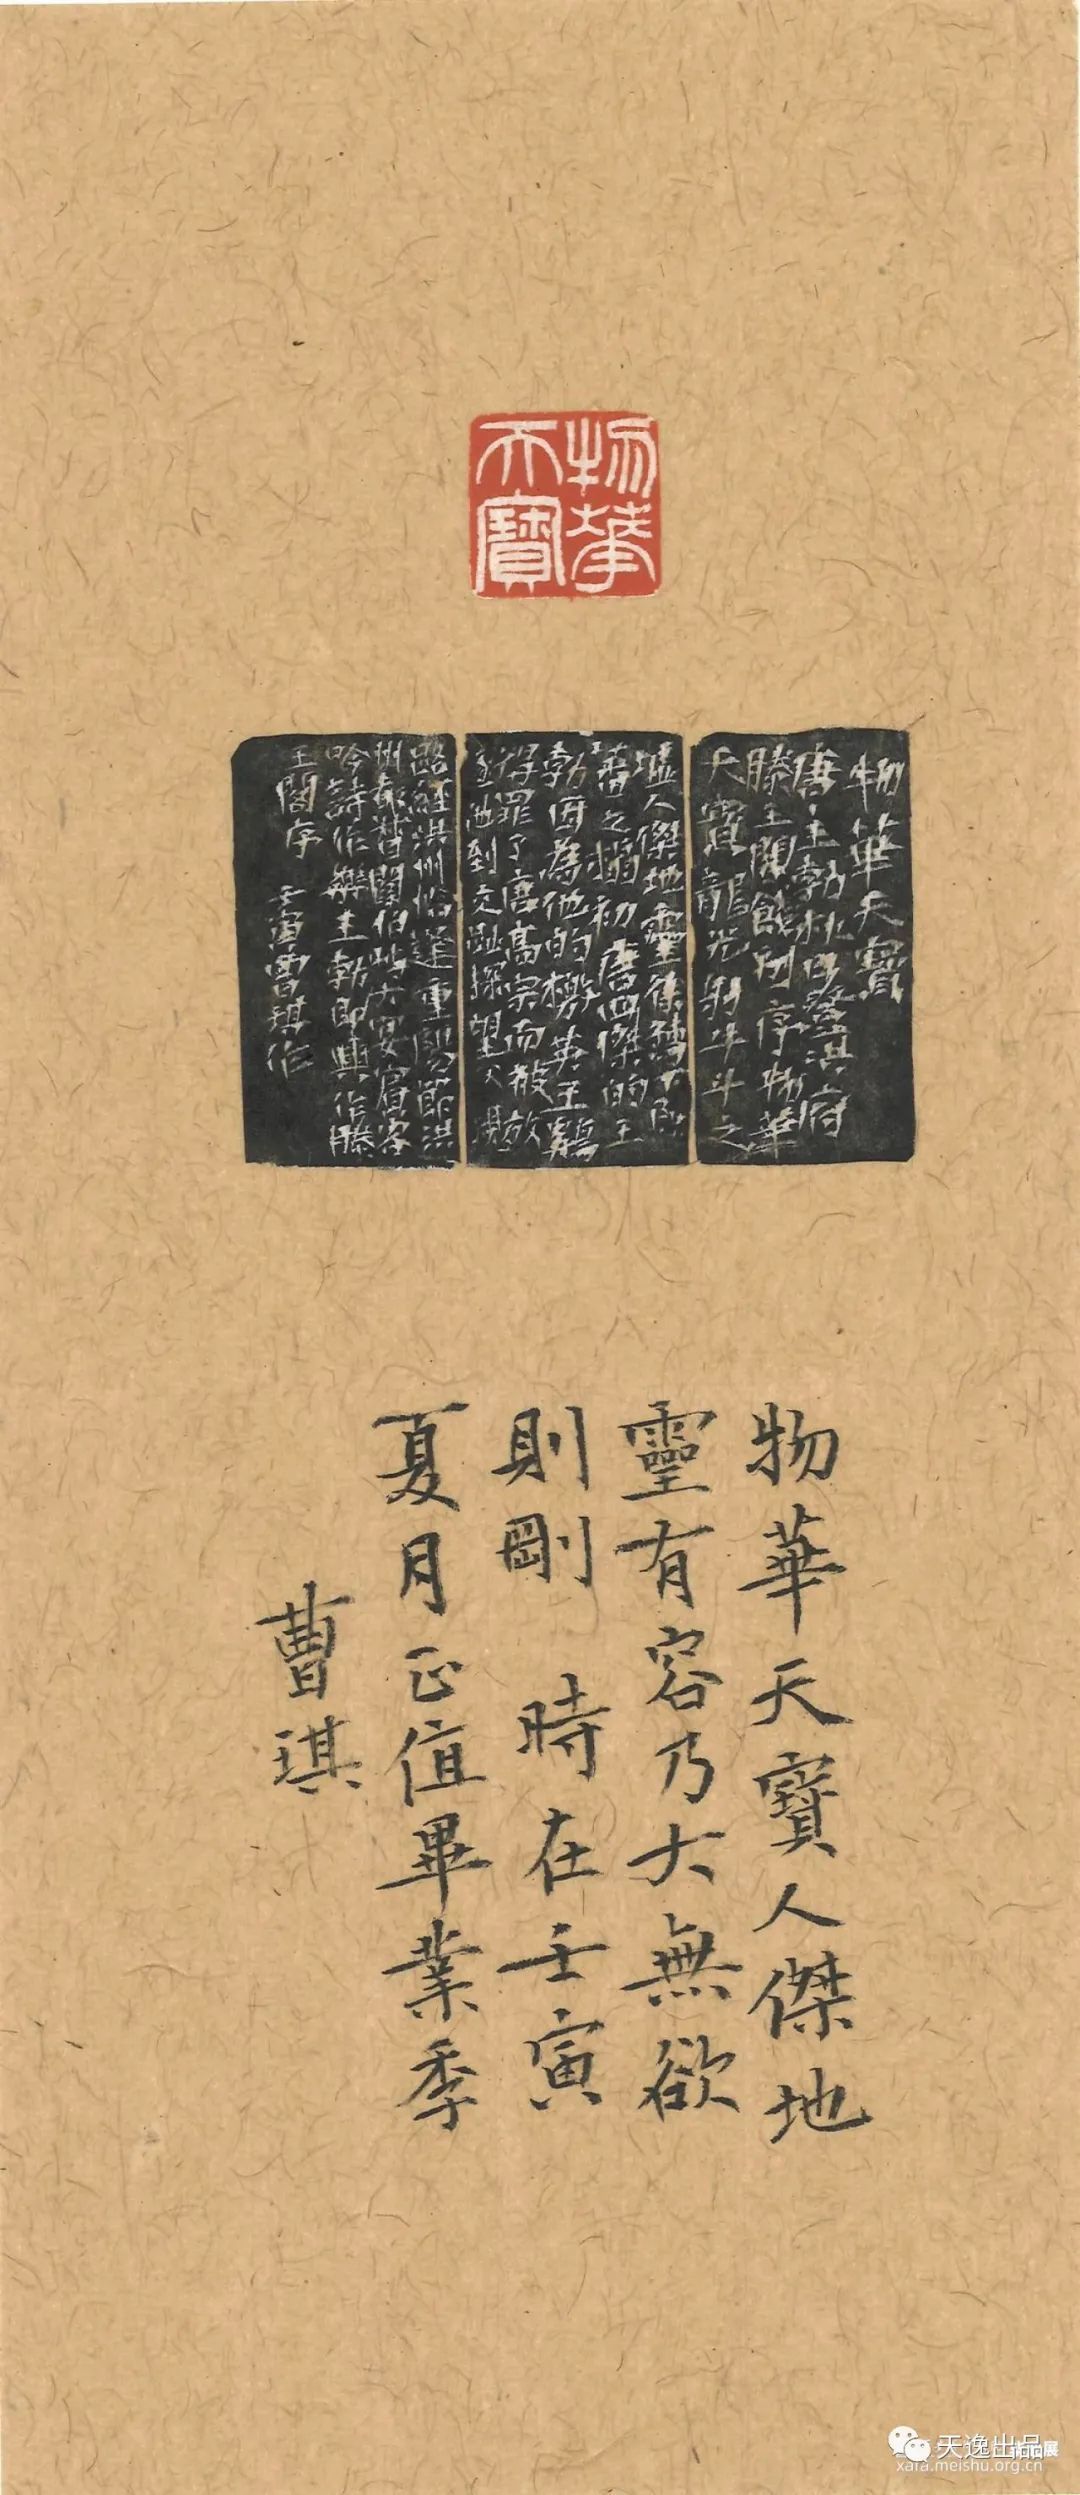 物華
天寶
物華天寶
唐·王勃秋日登洪府
滕王閣餞別序物華
天寶龍光射牛斗之
墟人傑地靈徐孺下
蕃之榻初唐四傑的王
勃因為他的檄英王鷄
得罪了唐高宗而被放
到交趾探望
路經洪州恰逢重陽節洪
州都督閻伯嶼大宴賓客
吟詩作樂王勃即興作滕
王閣序 壬寅曹琪作
物華天寶人傑地
靈有容乃大無欲
則剛 時在壬寅
夏月正值畢業季
曹琪
天逸出品
xafa.meishu.org.cn